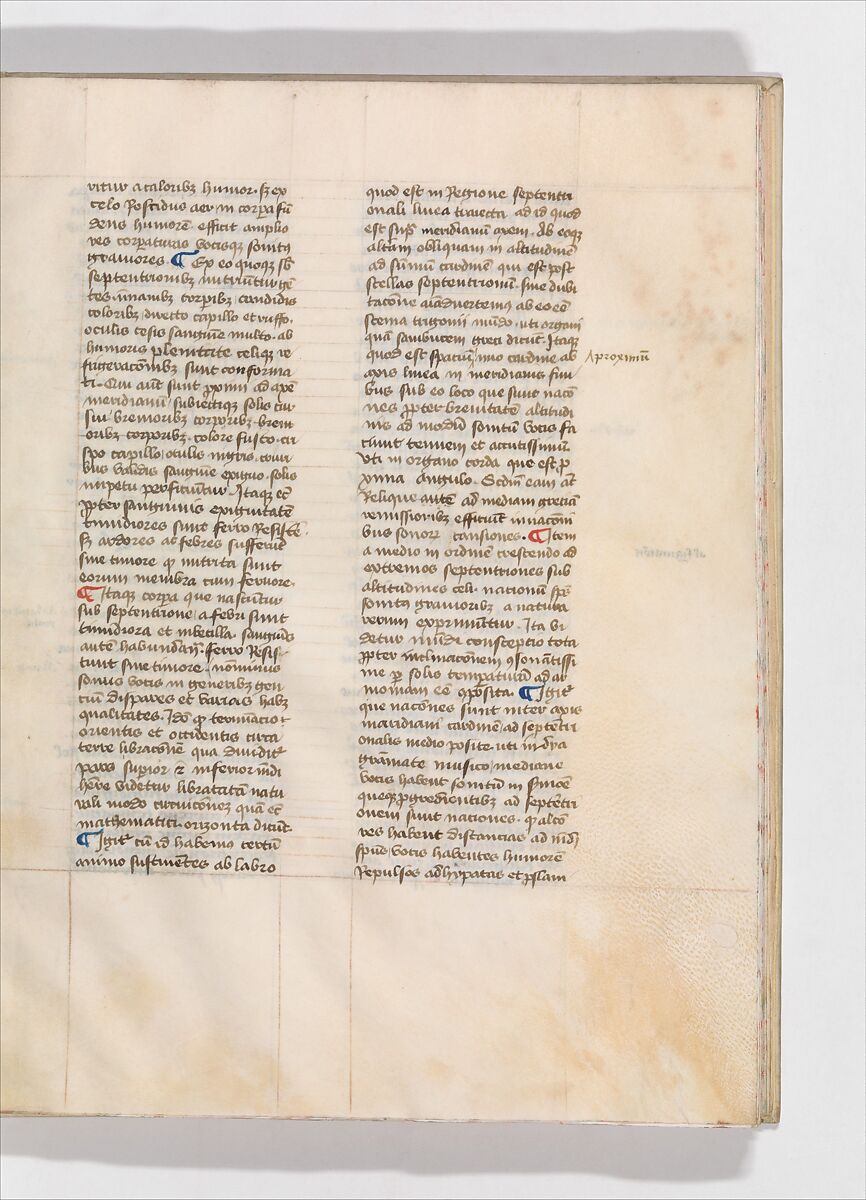 ritur a caloribꝫ humor · sꝫ ex
celo Roscidus aer in corꝑa fū
dens humorē efficit amplio
res corꝑaturas vocisqꝫ sonitꝰ
grauiores · ¶ Ex eo quoqꝫ sb̄
septentrionibꝫ nutriūtur gē
tes · īmanibꝫ corꝑibꝫ · candidis
coloribꝫ · directo capillo et ruffo ·
oculis cesis sanguīe multo · ab
humoris plenitate celiqꝫ re
frigeracōnibꝫ sunt conforma
ti · Qui aūt sunt ꝓximi ad axē
meridianū · subiectiqꝫ solis cur
sui breuioribꝫ corꝑoribꝫ · breui
oribꝫ corꝑoribꝫ · colore fusco · cri
spo capillo · oculis nigris · cruri
bus validis sanguīe exiguo · solis
impetu perficiuntur · Itaqꝫ ec̄
ꝓpter sanguinis exiguitatē
timidiores sunt ferro Resistē ·
sꝫ ardores ac febres sufferūt
sine timore qꝫ nutrita sunt
eorum membra cum feruore ·
¶ Itaqꝫ corꝑa que nascūtur
sub septentrione · a febri sunt
timidiora et inbecilla · sanguīs
autē habundan̄ · ferro Resis-
tunt sine timore · nōminus
sonus vocis in generibꝫ gen
cium dispares et varias habꝫ
qualitates · Ido qꝫ terminacio ·
orientis et occidentis circa
terre libracōnē qua diuidit̄
pars suꝑior ⁊ inferior mūdi
hr̄e videtur libratam natu
rali modo circuicōneꝫ quā ec̄
mathematici orizonta dicūt ·
¶ Igit̄ cū id habemꝰ certū
animo sustinentes ab labro
quod est in Regione septentri
onali linea traiecta ad id quod
est suꝑ meridianū axem · Ab eoqꝫ
altam obliquam in altitudinē
ad sūmū cardinē qui est post
stellas septentrionum · sine dubi
tacōne aīaduertemꝰ ab eo eē
scema trigonij mūdo · uti organi
quā sambucem greci dicūt · Itaqꝫ
quod est spatiū imo cardine ab
axis linea in meridianis fini
bus sub eo loco que sunt nacō
nes ꝓpter breuitatē altitudi
nis ad mōdū sonitū vocis fa
ciunt tenuem et accutissimū
vti in organo corda que est ꝓ
xima angulo · Scdm̄ eam aūt
Relique autē ad mediam greciā
remissioribꝫ efficiūt in nacōni
bus sonorꝫ cansiones · ¶ Item
a medio in ordinē crescendo ad
extremos septentriones sub
altitudines celi · nacionū sp̄s
sonitꝰ grauioribꝫ a natura
rerum exprimūtur · Ita vi
detur mūdi conseptio tota
ꝓpter inclinacōnem ꝯsonātissi
me ꝑ solis temperaturā ad ar
moniam eē ꝯposita · ¶ Igit̄
que nacōnes sunt inter axis
maridiani cardinē ad septētri
onalis medio posite · uti in dya
grāmate musico · mediane
vocis habent sonitū in s̄mōē
queqꝫ ꝓgredientibꝫ ad septētri
onem sunt naciones · ꝙ alcō
res habent distancias ad mūdi
sp̄us vocis habentes humorē
Repulsos ad hypatas et ꝓslam
Aproximū